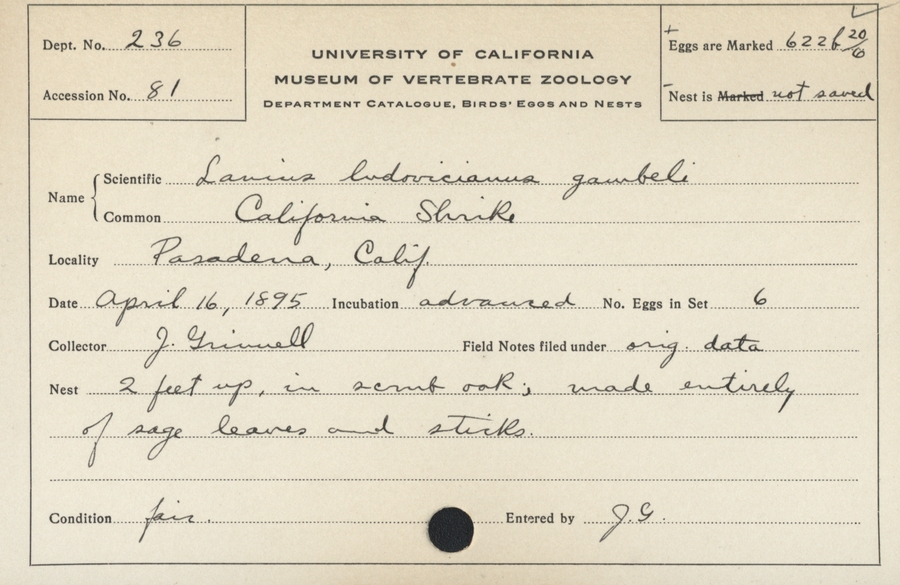 Dept. No. 236
Accession No. 81
UNIVERSITY OF CALIFORNIA
MUSEUM OF VERTEBRATE ZOOLOGY
DEPARTMENT CATALOGUE, BIRDS' EGGS AND NESTS
+ Eggs are Marked 622b 20/6
- Nest is Marked not saved
Name
Scientific Lanius ludovicianus gambeli
Common California Shrike
Locality Pasadena, Calif.
Date April 16, 1895 Incubation advanced No. Eggs in Set 6
Collector J. Grinnell Field Notes filed under orig. data
Nest 2 feet up, in scrub oak; made entirely
of sage leaves and sticks.
Condition fair. Entered by J.G.